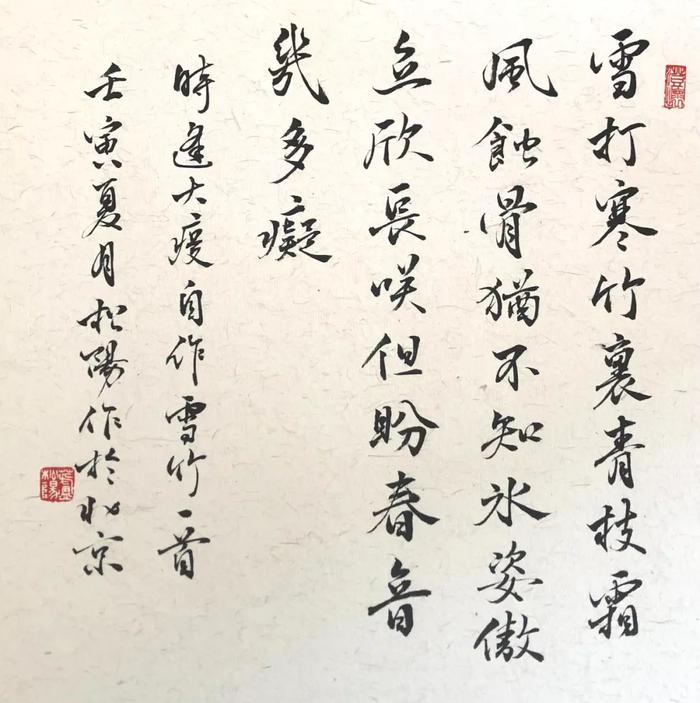 雪打寒竹裏青枝霜
風蝕骨猶不知冰姿傲
立欣長咲但盼春音
幾多癡
時逢大疫自作雪竹一首
壬寅夏月松陽作於北京